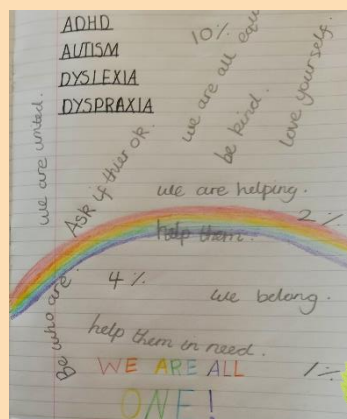 ADHD
AUTISM
DYSLEXIA
DYSPRAXIA
10%
we are all equ
be kind.
love yourself.
we are united.
Ask if thier ok.
we are helping.
2%
help them.
4%
we belong.
Be who are.
help them in need.
WE ARE ALL
1%
ONE!